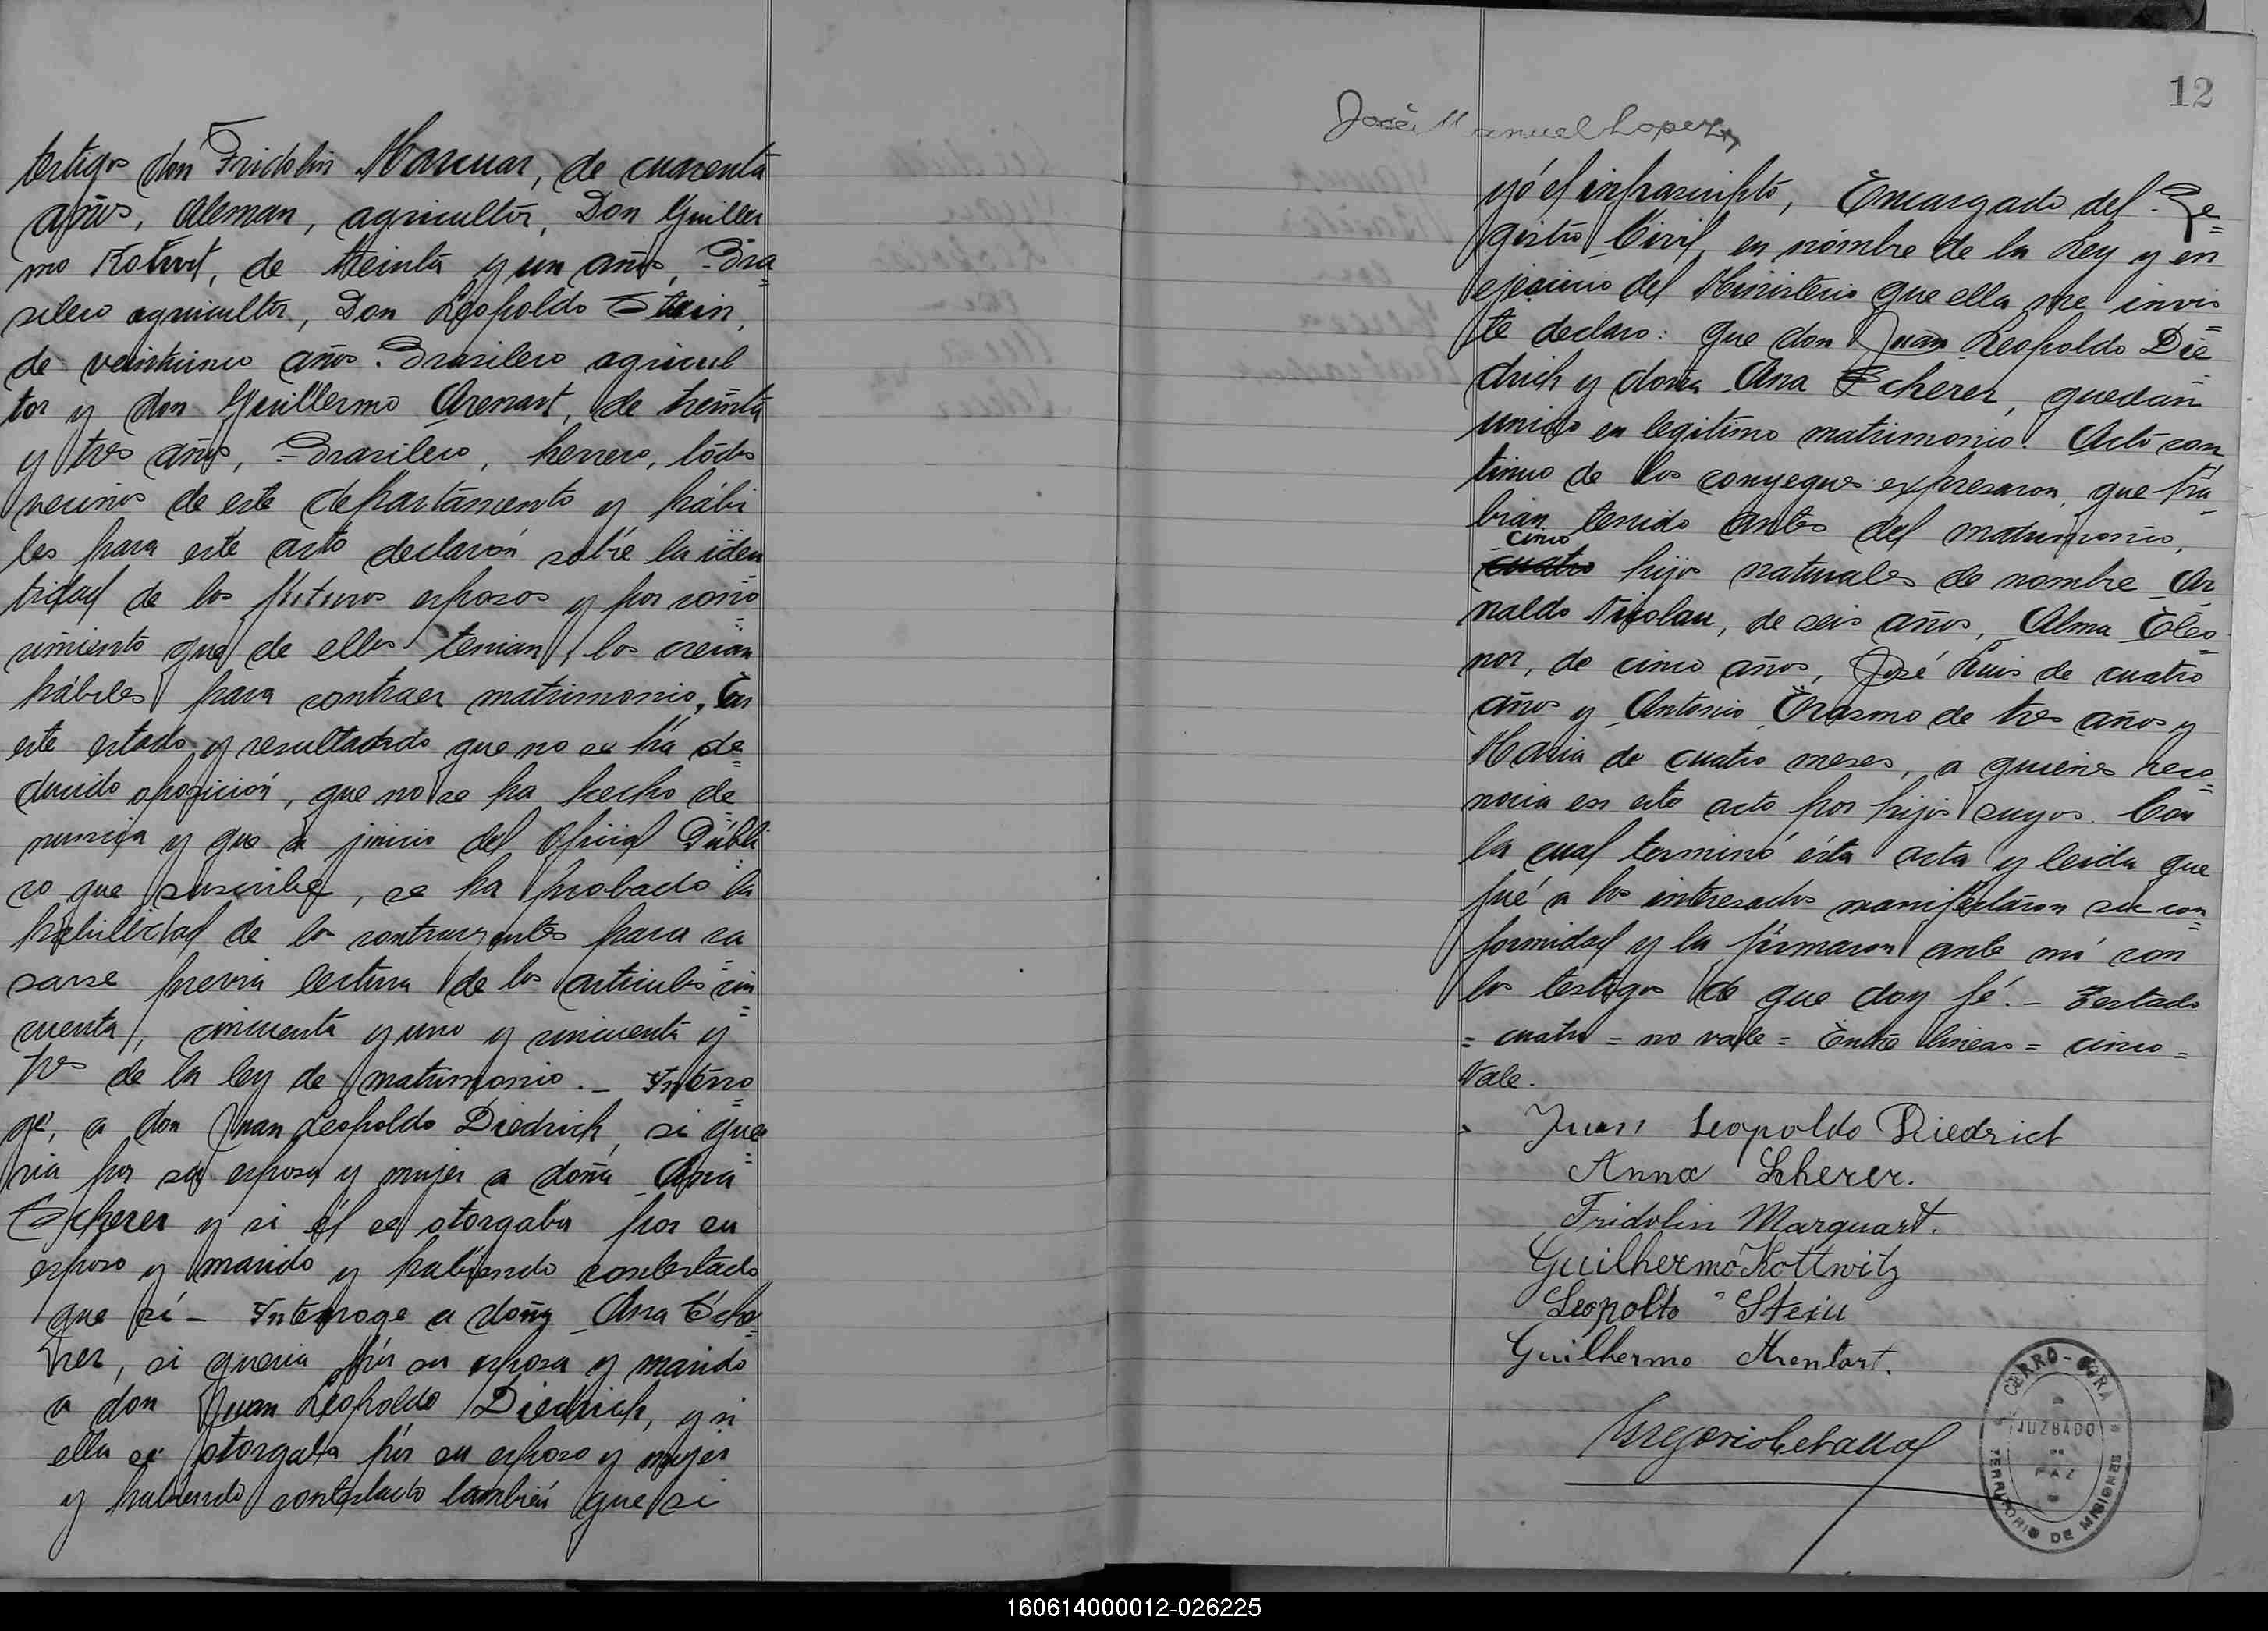 testigos don Fridolin Marcuar, de cuarenta
años, Aleman, agricultor, Don Guiller
mo Kotwit, de treinta y un años, Bra=
silero agricultor, Don Leopoldo Stein,
de veinticinco años. Brasilero agricul
tor y don Guillermo Arenart, de treinta
y tres años, Brasilero, herrero, todos
vecinos de este departamento y hábi
les para este acto declarón sobre la iden=
tidad de los futuros esposos y por cono=
cimiento que de ellos tenian, los creian
hábiles para contraer matrimonio, En
este estado y resultadado que no se ha de=
ducido oposición, que no se ha hecho de=
nuncia y que a juicio del Oficial Públi=
co que suscribe, se ha probado la
habilidad de los contrayentes para ca=
sarse previa lectura de los articulos cin=
cuenta, cincuenta y uno y cincuenta y
tres de la ley de matrimonio.- Interro=
gé, a don Juan Leopoldo Diedrich, si que=
ria por su esposa y mujer a doña Ana
Scherer y si él se otorgaba por su
esposo y marido y habiendo contestado
que sí - Interroge a doña Ana Sche=
rer, si queria por su esposo y marido
a don Juan Leopoldo Diedrich, y si
ella se otorgaba por su esposo y mujer
y habiendo contestado también que si
12
José Manuel Lopez
yó el infrascripto, Encargado del Re=
gistro Civil, en nómbre de la Ley y en
ejercicio del Ministerio que ella me invis=
te declaro: que don Juan Leopoldo Die=
drich y doña Ana Scherer, quedan
unidos en legitimo matrimonio. Acto con
tinuo de los conyegues expresaron, que ha=
bian tenido antes del matrimonio,
cinco
cuatro hijos naturales de nombre Ar
naldo Nicolau, de seis años, Alma Eleo=
nor, de cinco años, José Luis de cuatro
años y Antonio Erasmo de tres años y
Maria de cuatro meses, a quienes reco=
nocia en este acto por hijos suyos. Con
la cual terminó ésta acta y leida que
fué a los interesados manifestáron su con=
formidad y la firmaron ante mí con
los testigos de que doy fé.- Testado
= cuatro = no vale = Entre lineas = cinco =
Vale.
Juan Leopoldo Diedrich
Anna Scherer.
Fridolin Marquart.
Guilhermo Kottwitz
Leopolto Stein
Guilhermo Arentart.
CERRO-CORA
JUZGADO
DE
PAZ
TERRITORIO DE MISIONES
160614000012-026225